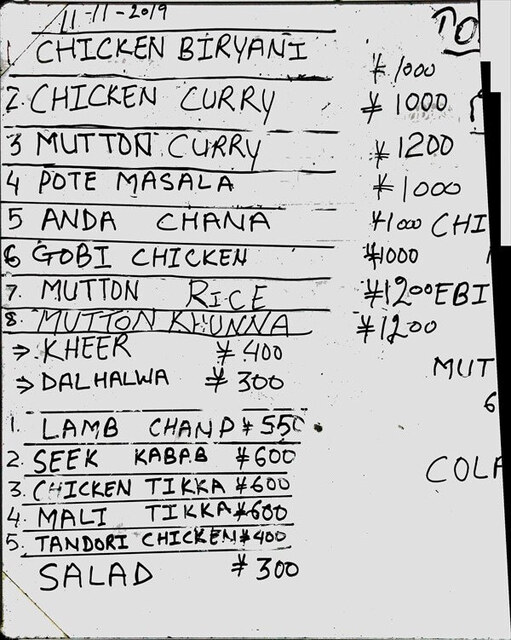 11-11-2019
1 CHICKEN BIRYANI ¥1000
2. CHICKEN CURRY ¥1000
3 MUTTON CURRY ¥1200
4 POTE MASALA ¥1000
5 ANDA CHANA ¥1000 CHI
6 GOBI CHICKEN ¥1000
7. MUTTON RICE ¥1200 EBI
8. MUTTON KHUNNA ¥1200
⇒ KHEER ¥400
⇒ DALHALWA ¥300
MUT
6
1. LAMB CHANP ¥550
2. SEEK KABAB ¥600
COLA
3. CHICKEN TIKKA ¥600
4 MALI TIKKA ¥600
5. TANDORI CHICKEN ¥400
SALAD ¥300